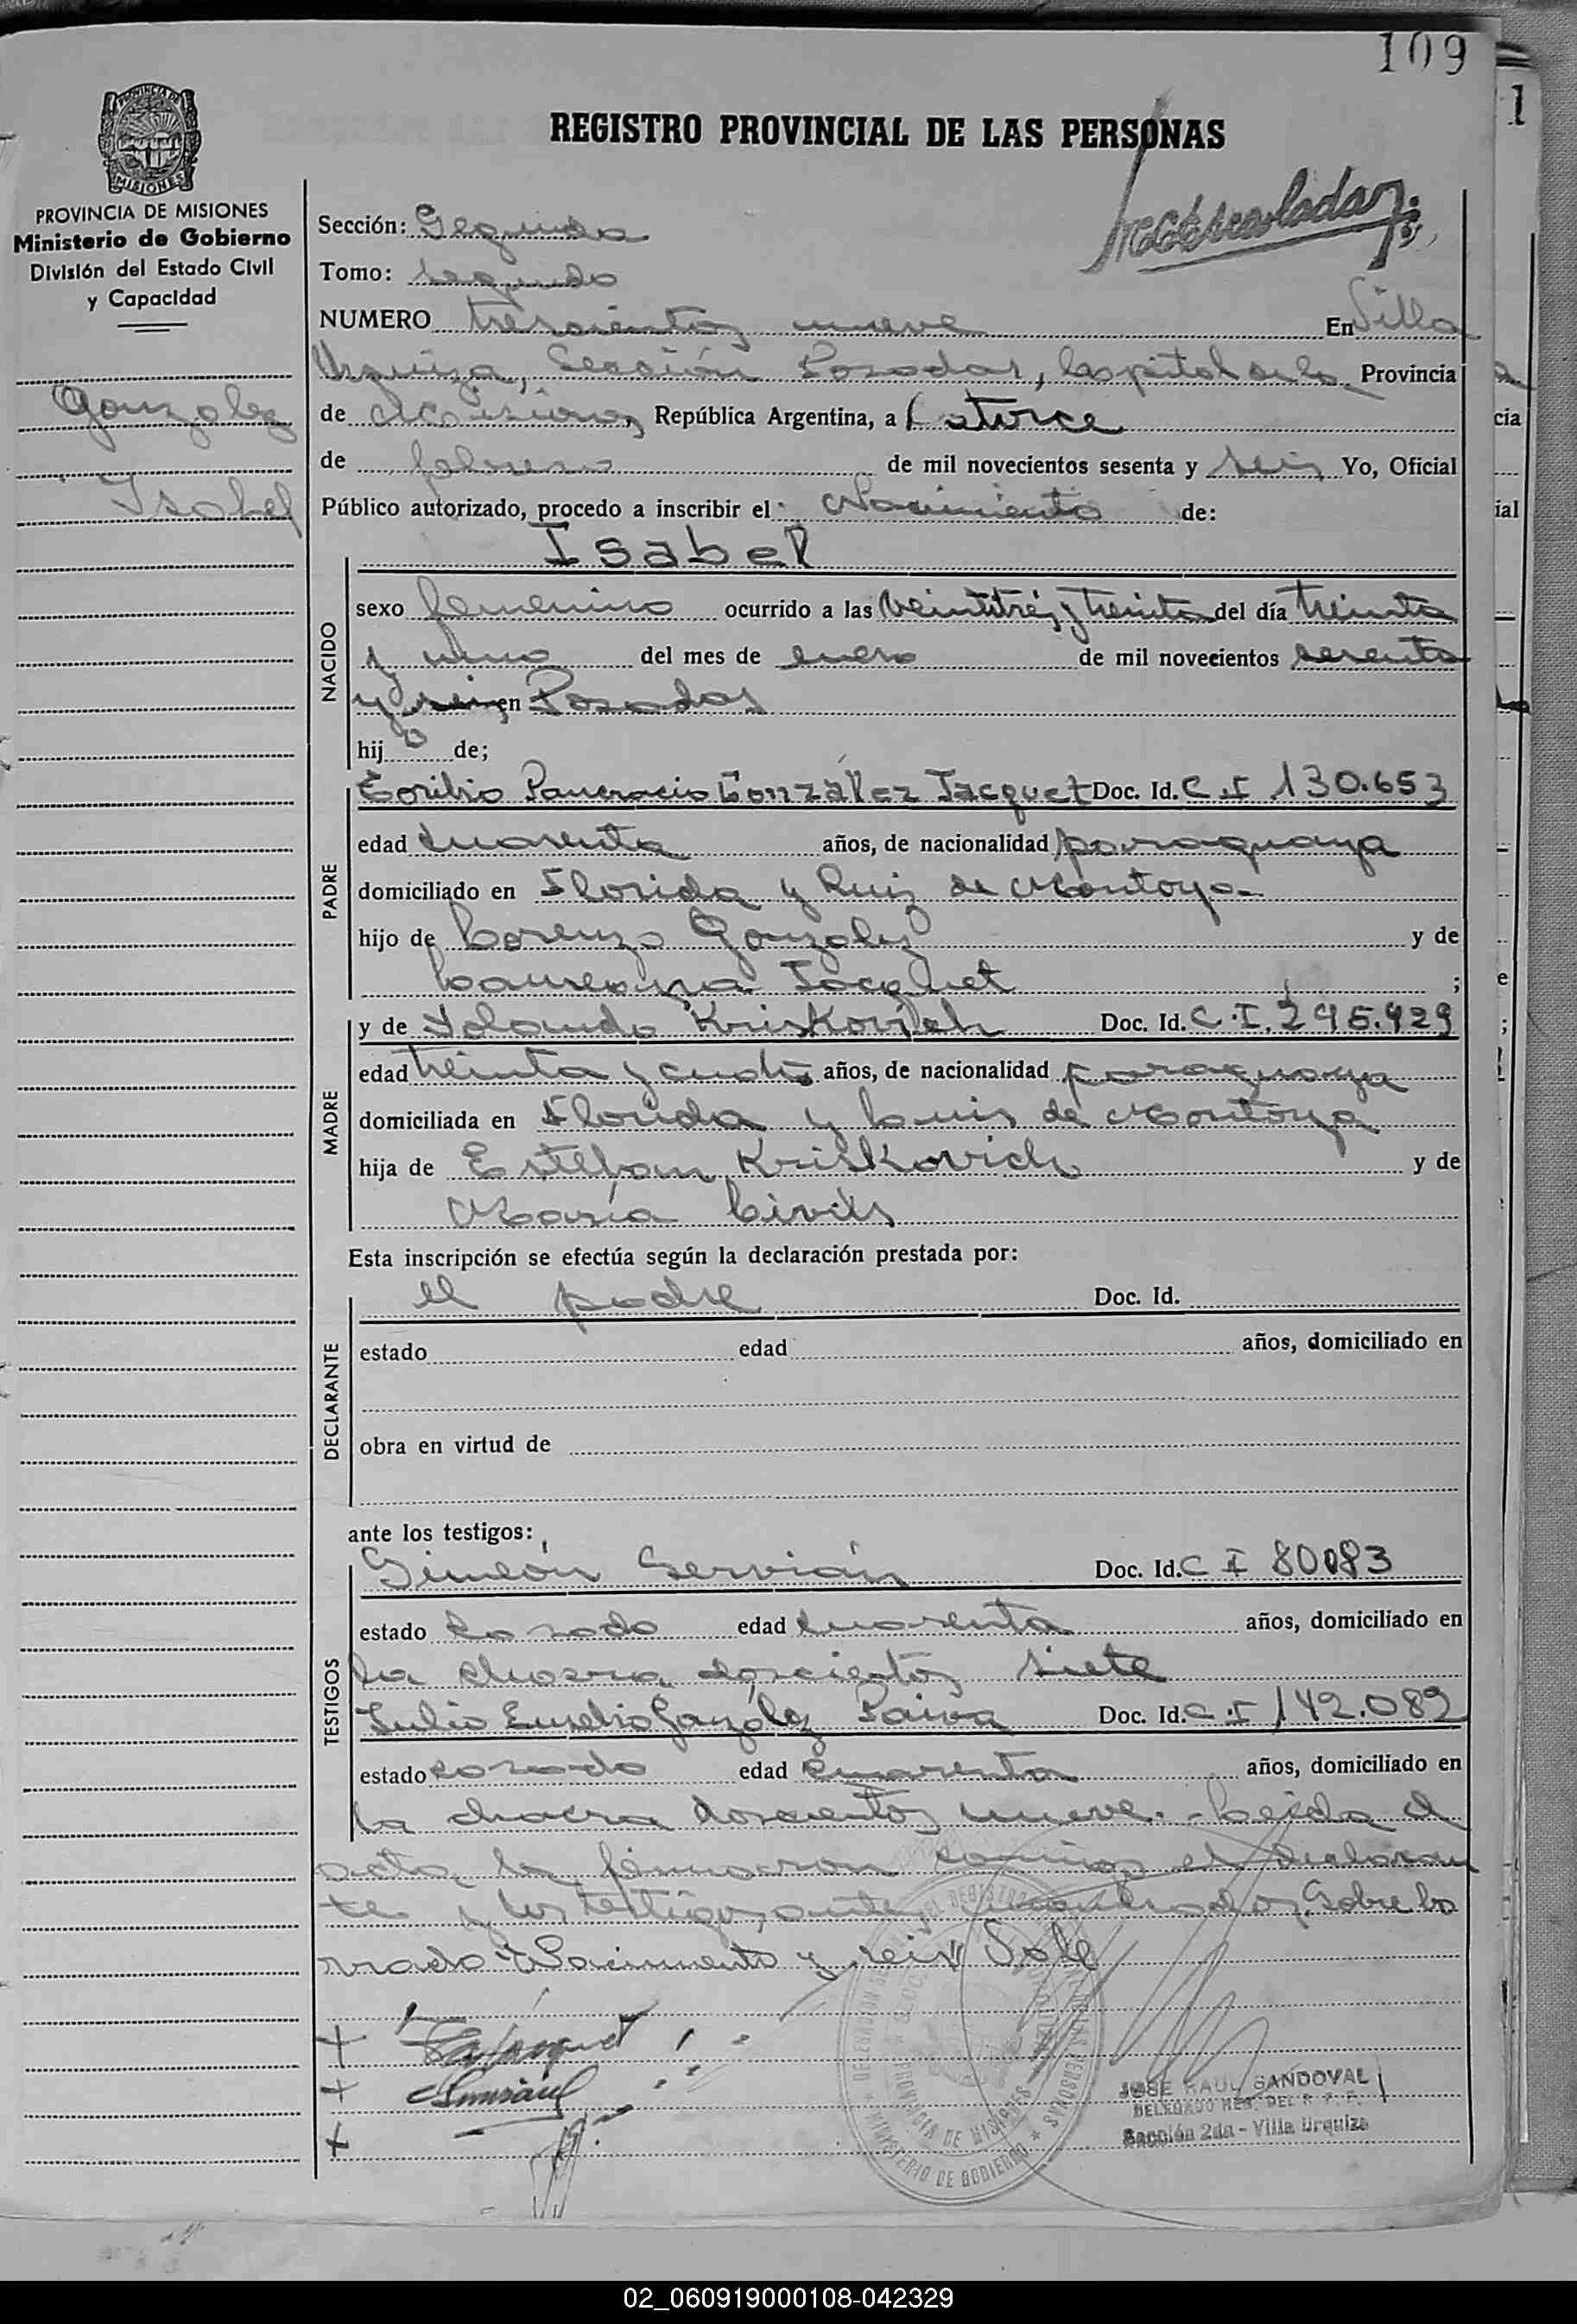 109
REGISTRO PROVINCIAL DE LAS PERSONAS
PROVINCIA DE MISIONES
Ministerio de Gobierno
División del Estado Civil
y Capacidad
Gonzalez
Isabel
Sección: Segunda
Tomo: Segundo
NUMERO trescientos nueve En Villa
Urquiza, Sección Posadas, Capital de la Provincia
de Misiones, República Argentina, a Catorce
de febrero de mil novecientos sesenta y seis Yo, Oficial
Público autorizado, procedo a inscribir el Nacimiento de:
Isabel
NACIDO
sexo femenino ocurrido a las veintitrés y treinta del día treinta
y uno del mes de enero de mil novecientos sesenta
y seis en Posadas
hij a de;
PADRE
Pancracio González Jacquet Doc. Id. C.I 130.653
edad cuarenta años, de nacionalidad paraguaya
domiciliado en Florida y Ruiz de Montoya
hijo de Lorenzo González y de
Jacquet ;
MADRE
y de Yolanda Kriskovich Doc. Id. C.I. 295.929
edad treinta y cuatro años, de nacionalidad paraguaya
domiciliada en Florida y Ruiz de Montoya
hija de Esteban Kriskovich y de
María
Esta inscripción se efectúa según la declaración prestada por:
DECLARANTE
el padre Doc. Id.
estado edad años, domiciliado en
obra en virtud de
ante los testigos:
TESTIGOS
Simeón Servián Doc. Id. C I 80083
estado casado edad cuarenta años, domiciliado en
la chacra doscientos siete
Julio Eusebio González Paiva Doc. Id. C.I 142.089
estado casado edad cuarenta años, domiciliado en
la chacra doscientos nueve.- Leída el
acta, la firmaron conmigo el declaran
te y los testigos, antes nombrados. Sobre bo
rrado: Nacimiento y seis Vale
JOSE RAUL SANDOVAL
DELEGADO REG. DEL R. P. P.
Sección 2da - Villa Urquiza
02_060919000108-042329